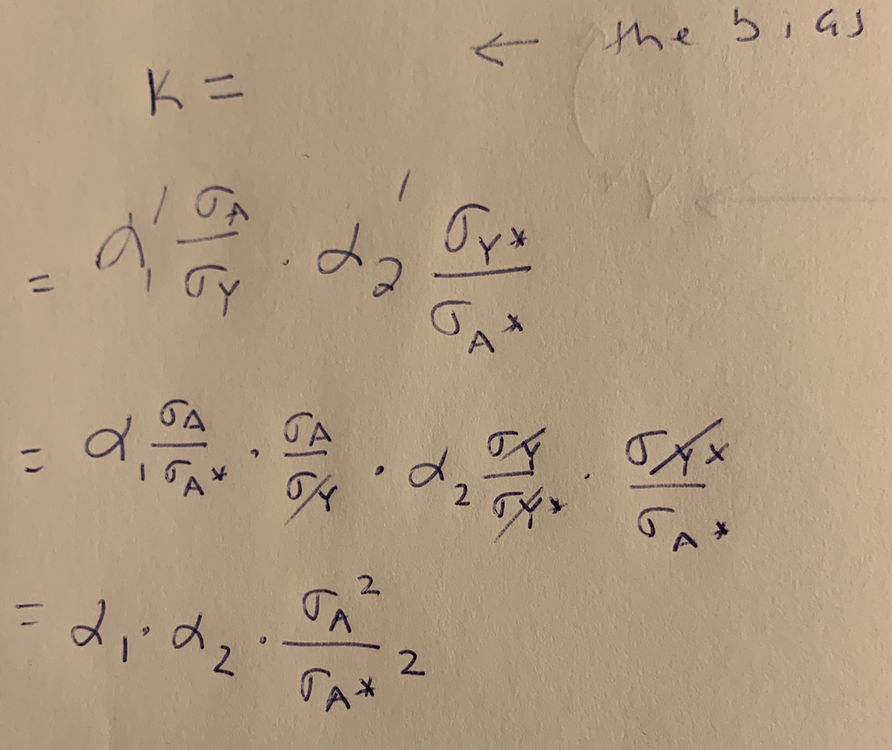 ← the bias
K =
= α₁' σ_A/σ_Y · α₂' σ_Y*/σ_A*
= α₁ σ_A/σ_A* · σ_A/σ_Y · α₂ σ_Y/σ_Y* · σ_Y*/σ_A*
= α₁ · α₂ · σ_A²/σ_A*²